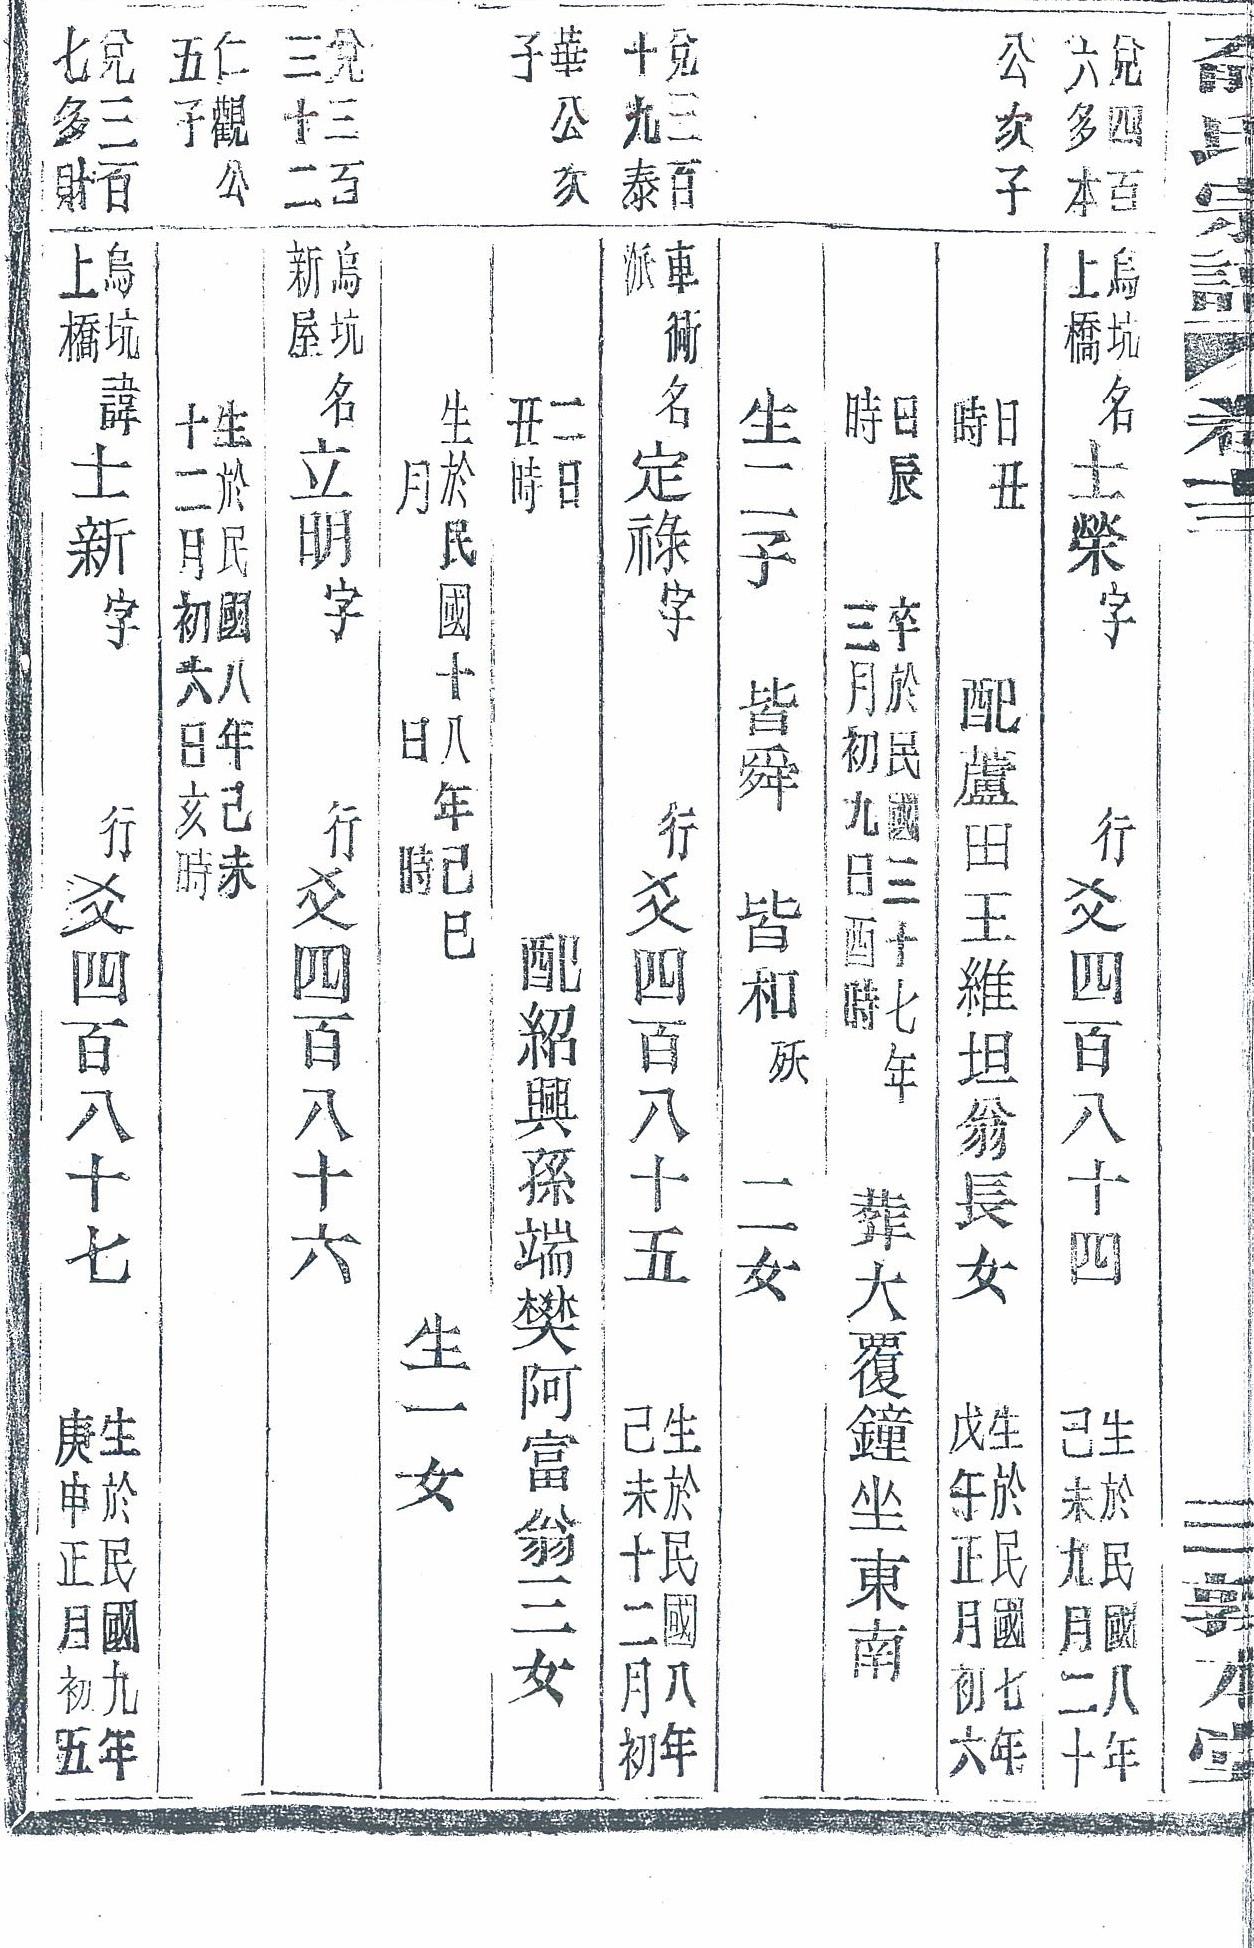 氏宗譜 卷三
兌四百
六多本
公次子
烏坑
上橋
名士榮字 行爻四百八十四
生於民國八年
己未九月二十
日丑
時
配蘆田王維坦翁長女
生於民國七年
戊午正月初六
日辰
時
卒於民國三十七年
三月初九日酉時
葬大覆鐘坐東南
生二子 皆舜 皆和殀 二女
兌三百
十九泰
華公次
子
車衕
派
名定祿字 行爻四百八十五
生於民國八年
己未十二月初
二日
丑時
配紹興孫端樊阿富翁三女
生於民國十八年己巳
月 日 時
生一女
兌三百
三十二
仁觀公
五子
烏坑
新屋
名立明字 行爻四百八十六
生於民國八年己未
十二月初六日亥時
兌三百
七多財
烏坑
上橋
諱士新字 行爻四百八十七
生於民國九年
庚申正月初五